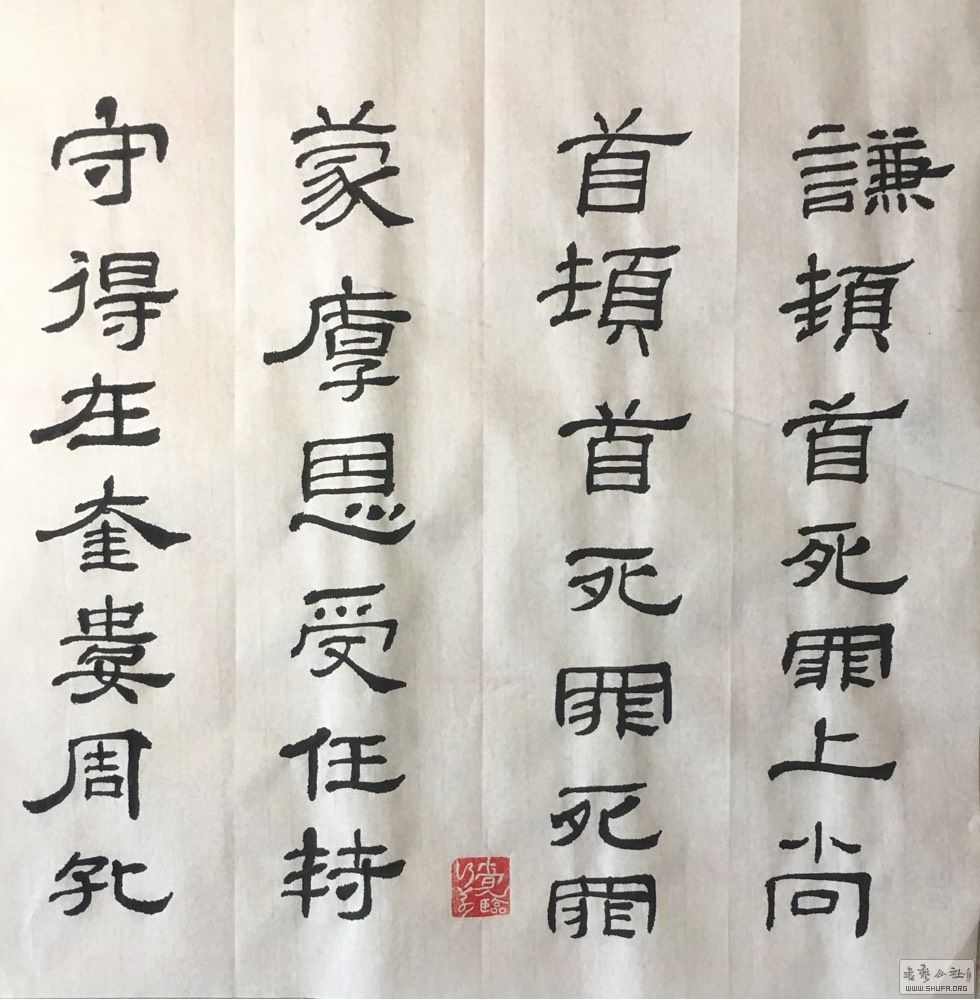 謙頓首死罪上尚
首頓首死罪死罪
蒙厚恩受任符
守得在奎婁周孔
WWW.SHUFA.ORG